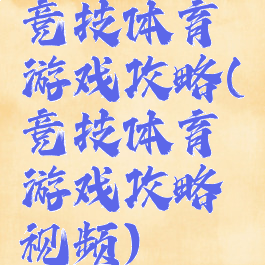 竞技体育
游戏攻略(
竞技体育
游戏攻略
视频)